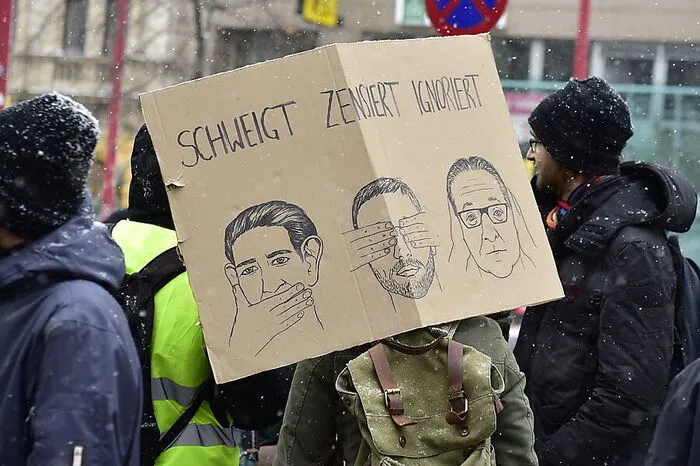 SCHWEIGT ZENSIERT IGNORIERT